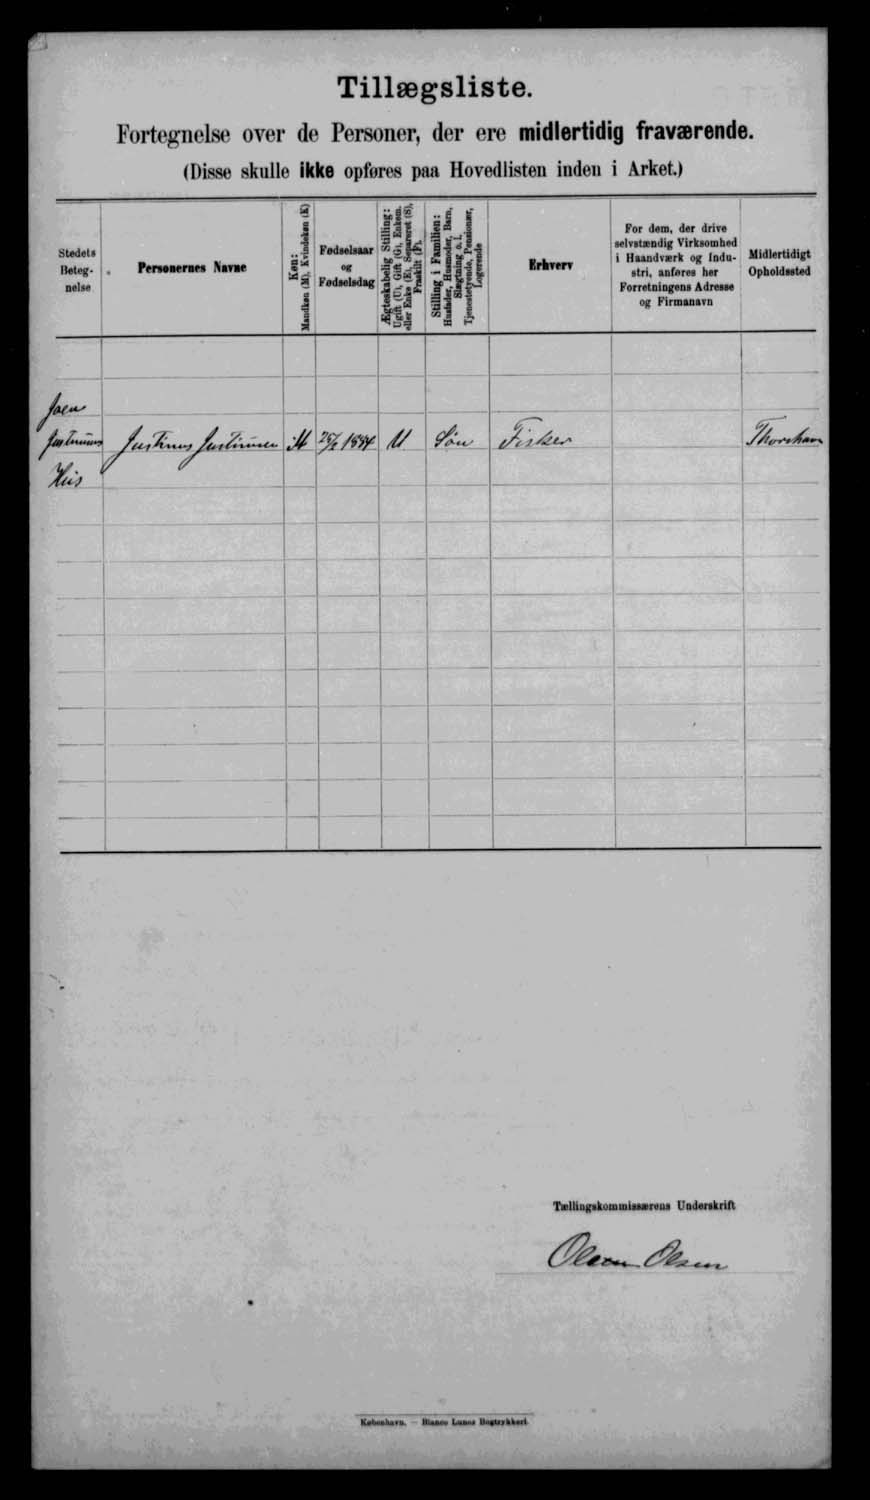 Tillægsliste.
Fortegnelse over de Personer, der ere midlertidig fraværende.
(Disse skulle ikke opføres paa Hovedlisten inden i Arket.)
Stedets
Beteg-
nelse
Personernes Navne
Køn:
Mandkøn (M), Kvindekøn (K)
Fødselsaar
og
Fødselsdag
Ægteskabelig Stilling:
Ugift (U), Gift (G), Enkem.
eller Enke (E), Separeret (S),
Fraskilt (F).
Stilling i Familien:
Husfader, Husmoder, Barn,
Slægtning o. l.
Tjenestetyende, Pensionær,
Logerende
Erhverv
For dem, der drive
selvstændig Virksomhed
i Haandværk og Indu-
stri, anføres her
Forretningens Adresse
og Firmanavn
Midlertidigt
Opholdssted
Joen
Justinus Justinus Justinusen M 1884 U Søn Fisker Thorshavn
Hus
Tællingskommissærens Underskrift
Olsen
København. — Bianco Lunos Bogtrykkeri.